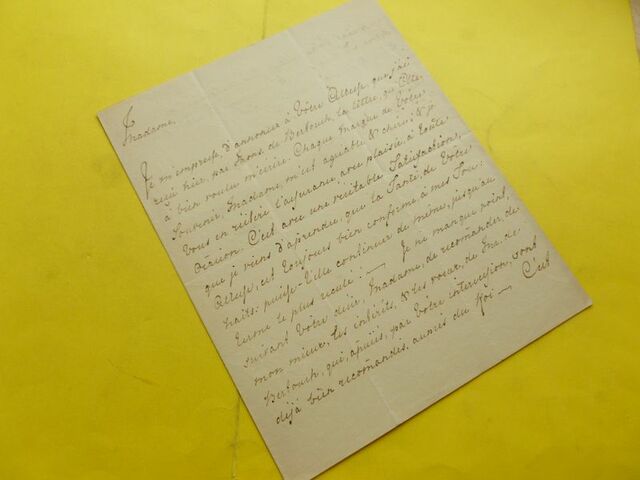 Madame,
Je m'empresse, d'annoncer à Vôtre Altesse, que j'ai
reçu hier, par Mons. de Bertouch, la lettre, qu'Elle
a bien voulu m'écrire. Chaque marque de Vôtre
Souvenir, Madame, m'est agréable & chère: & je
Vous en réitère l'assurance avec plaisir à toute
occasion. C'est avec une véritable Satisfaction,
que je viens d'aprendre, que la Santé de Vôtre
Altesse, est toujours bien conforme à mes Sou:
haits: puisse-t'Elle continuer de même, jusqu'au
terme le plus reculé! — Je ne manque point,
suivant Vôtre désir, Madame, de recomander, de
mon mieux, les intérêts, & les voeux, de Mr. de
Bertouch, qui, apuiés, par Vôtre intercession, sont
déjà bien recomandés auprès du Roi — C'est